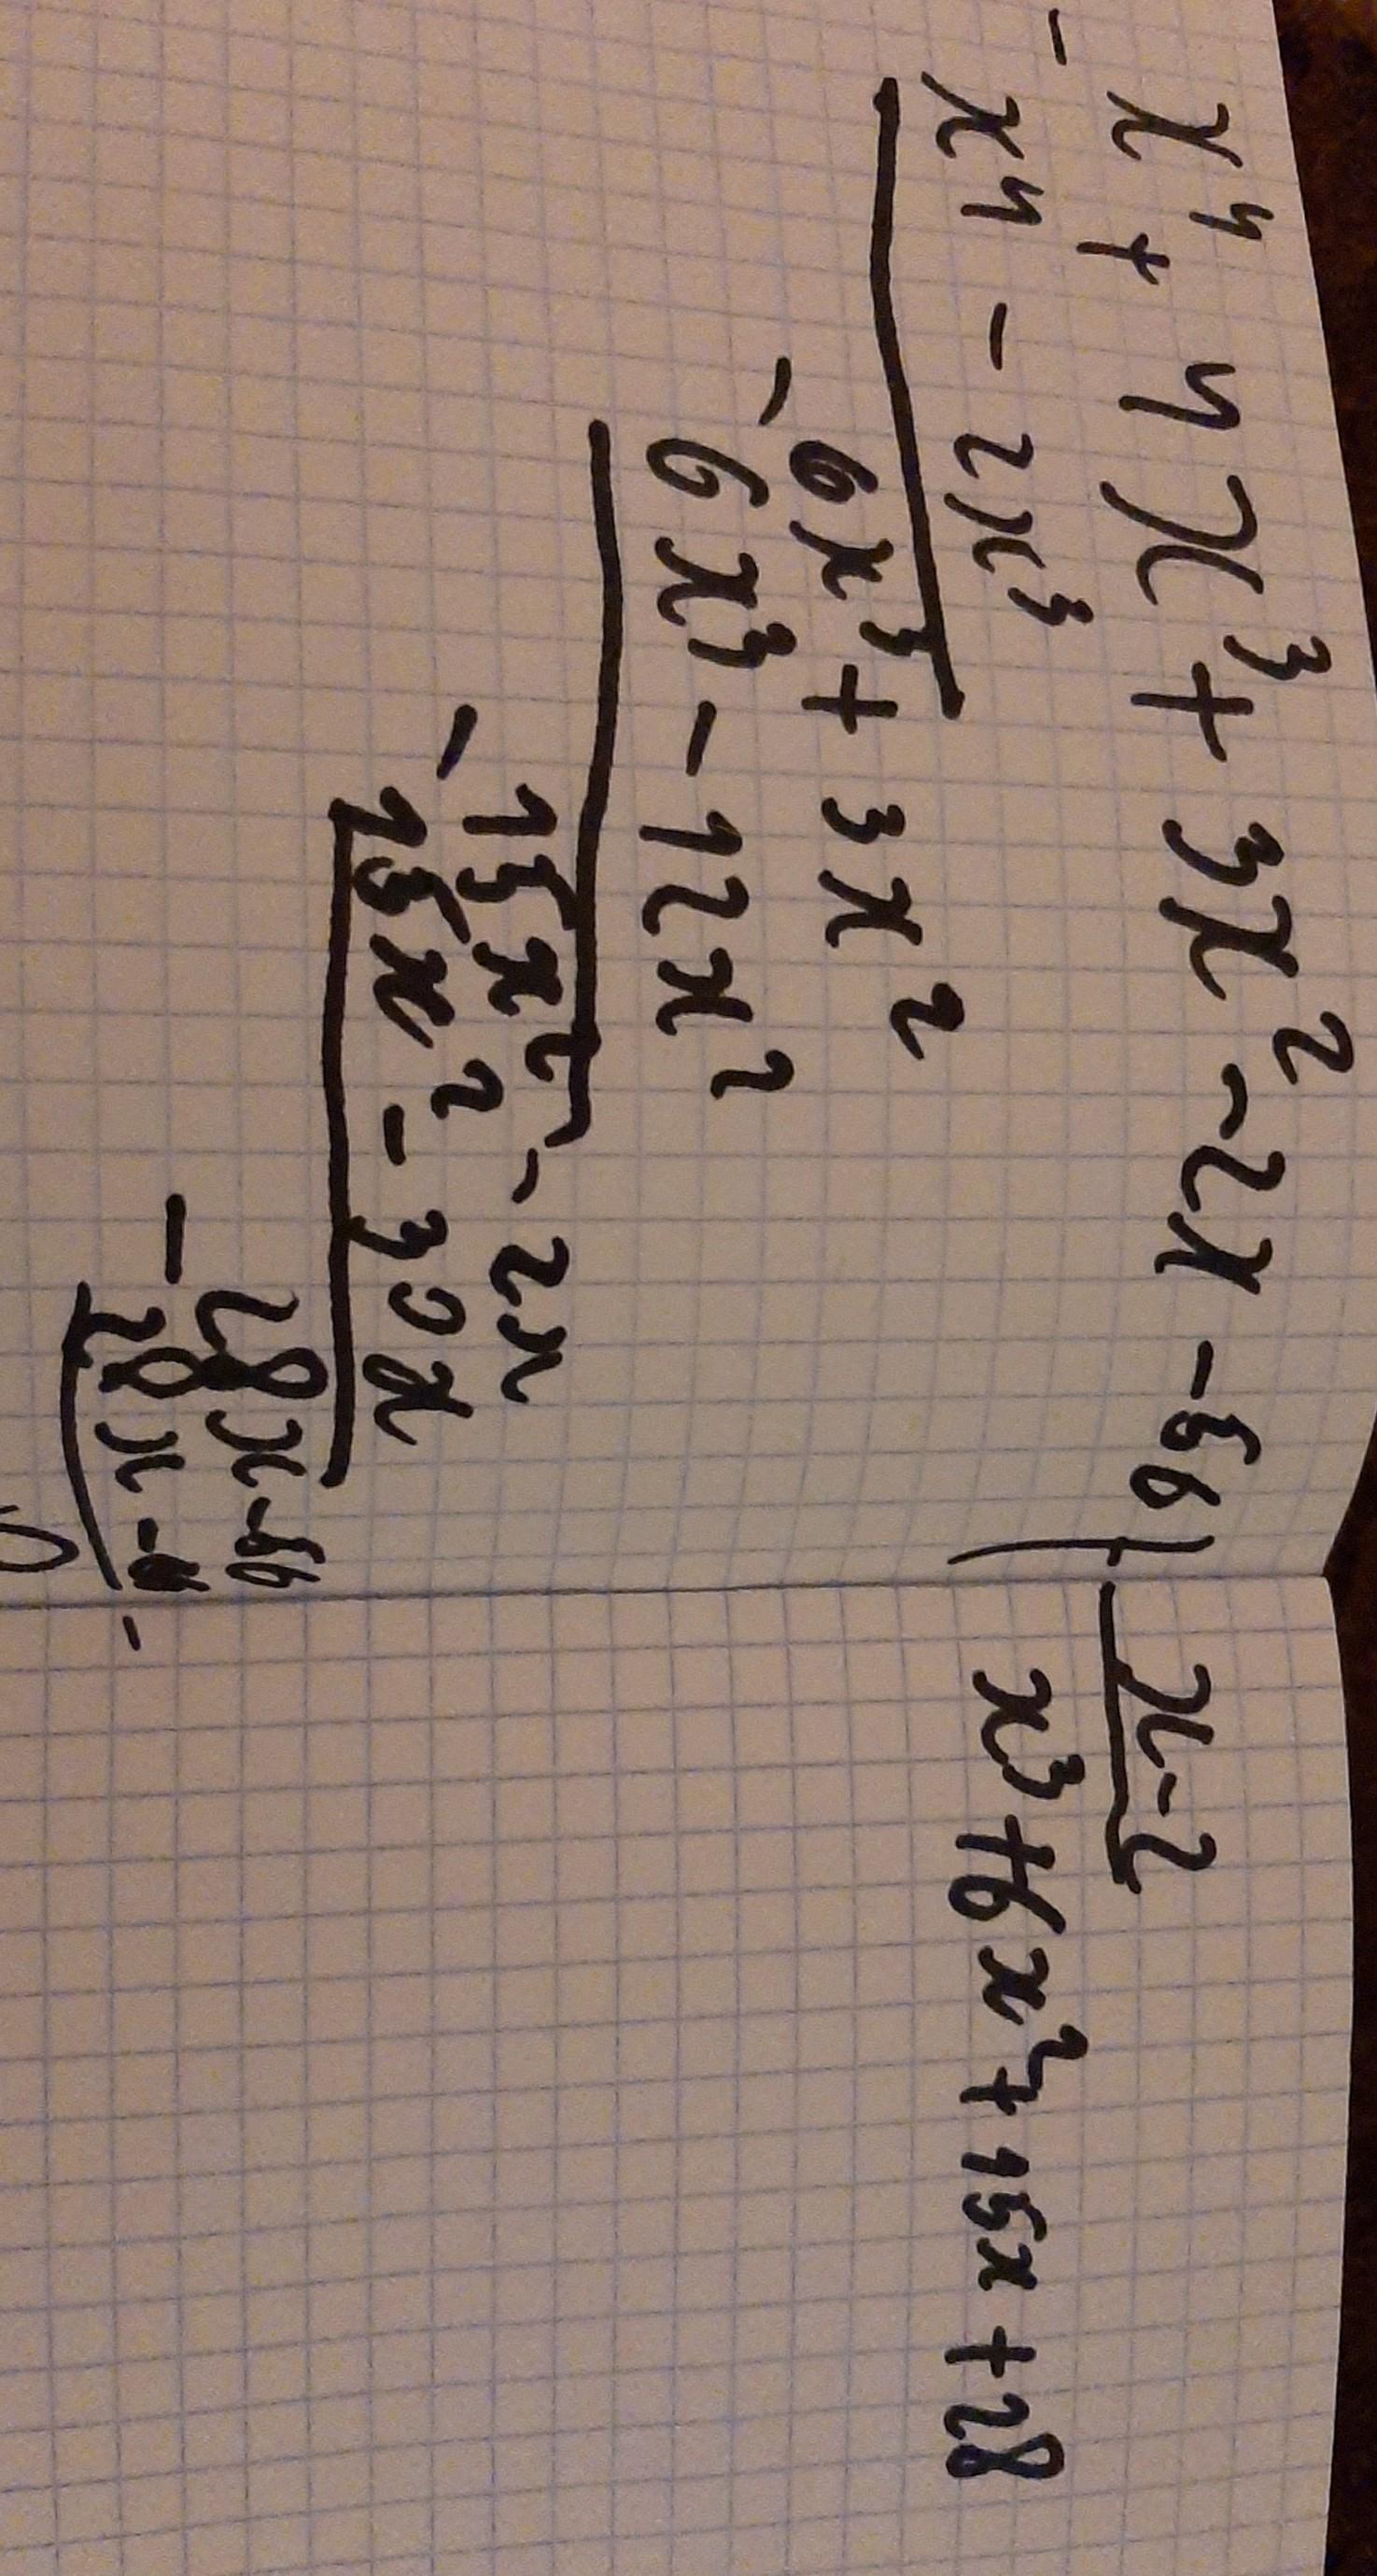 - x⁴ + 4x³ + 3x² - 2x - 56 | x - 2
x⁴ - 2x³ x³ + 6x² + 15x + 28
- 6x³ + 3x²
6x³ - 12x²
- 15x² - 2x
15x² - 30x
- 28x - 56
28x -
0